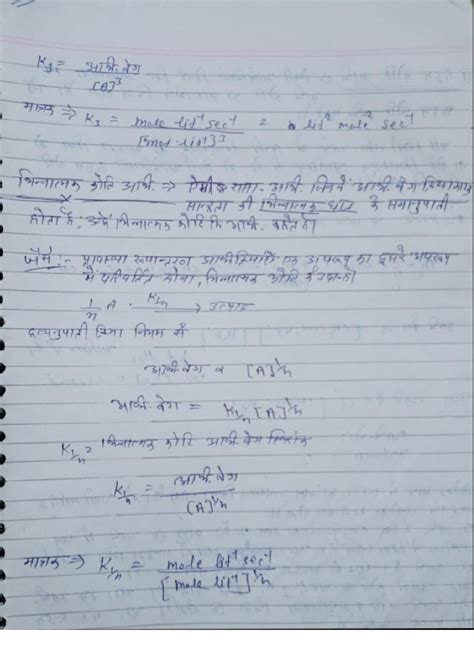 K₃ = अभि. वेग / [A]³
मात्रक ⇒ K₃ = mole lit⁻¹ sec⁻¹ / [mol-lit⁻¹]³ = lit² mole⁻² sec⁻¹
भिन्नात्मक कोटि अभि. ⇒ ऐसी रासा. अभि. जिनमें अभि. वेग क्रियाकारक
सान्द्रता की भिन्नात्मक घात के समानुपाती
होता है, उन्हें भिन्नात्मक कोटि कि अभि. कहते हैं।
जैसे :- प्रावस्था रूपान्तरण अभिक्रियाएँ एक अपरूप का दूसरे अपरूप
में परिवर्तित होना, भिन्नात्मक कोटि के
1/n A K1/n → उत्पाद
द्रव्यनुपाती क्रिया नियम से
अभि. वेग ∝ [A]1/n
अभि. वेग = K1/n [A]1/n
K1/n = भिन्नात्मक कोटि अभि. वेग स्थिरांक
K1/n = अभि. वेग / [A]1/n
मात्रक ⇒ K1/n = mole lit⁻¹ sec⁻¹ / [mole lit⁻¹]1/n